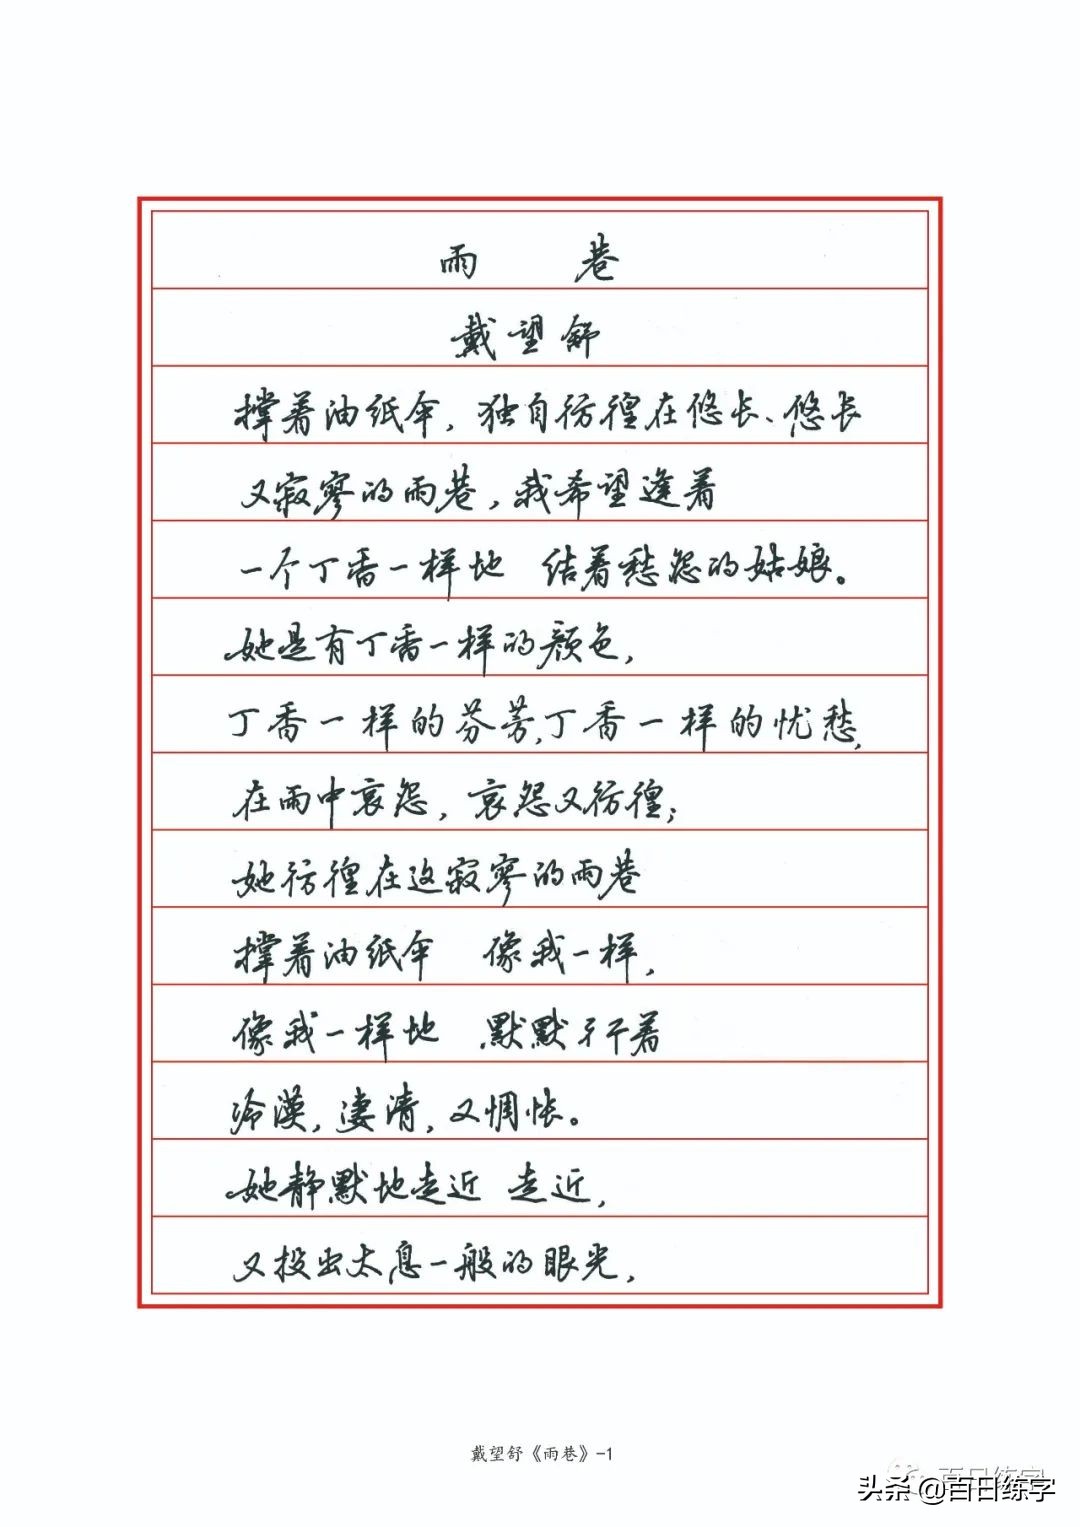 雨 巷
戴望舒
撑着油纸伞，独自彷徨在悠长、悠长
又寂寥的雨巷，我希望逢着
一个丁香一样地 结着愁怨的姑娘。
她是有丁香一样的颜色，
丁香一样的芬芳，丁香一样的忧愁，
在雨中哀怨，哀怨又彷徨；
她彷徨在这寂寥的雨巷
撑着油纸伞 像我一样，
像我一样地 默默彳亍着
冷漠，凄清，又惆怅。
她静默地走近 走近，
又投出太息一般的眼光，
戴望舒《雨巷》-1
百日练字
头条 @百日练字